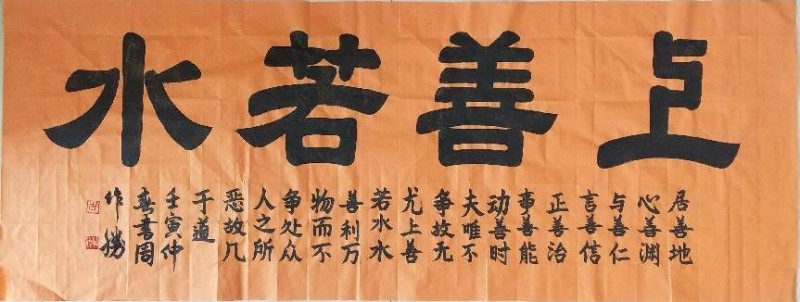 上善若水
居善地
心善渊
与善仁
言善信
正善治
事善能
动善时
夫唯不
争故无
尤上善
若水水
善利万
物而不
争处众
人之所
恶故几
于道
壬寅仲
春書周
作勝